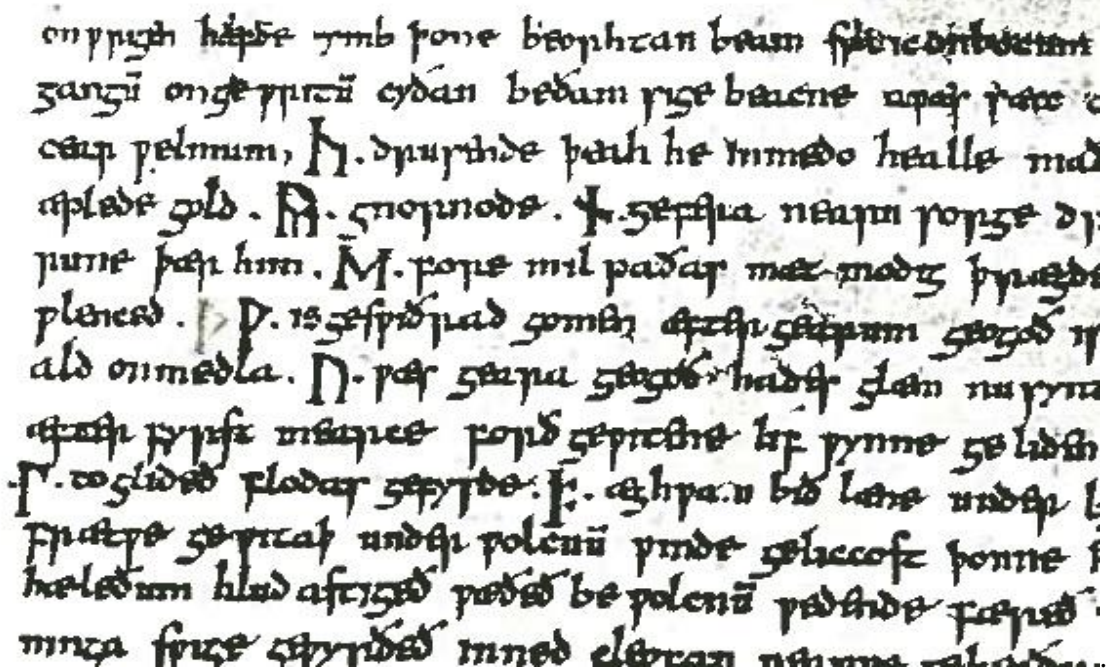 onƿrigen hæfde ymb þone beorhtan beam sƿa ic on bocum
gangū on geƿritū cyðan be ðam sige beacne a ƿæs sæcc
cear ƿelmum, ᚳ. drusende þeah he in medo healle mað
æplede gold. ᚣ. gnornode. ᚾ. gefera nearu sorge dr
rune þær him. ᛖ. fore mil paðas mæt modig þrægde
ƿlenced. ᚹ. is gesƿiðrad gomen æfter gearum geogoð is
ald onmedla. ᚢ. ƿæs geara geogoð hades glæm nu synt
æfter fyrst mearce forð geƿitene lif ƿynne geliden
.ᛚ. toglideð flodas gefysde. ᚠ. æghƿam bið læne under l
frætƿe geƿitaþ under ƿolcnū ƿinde geliccost þonne h
hæleðum hlud astigeð ƿæðeð be ƿolcnū ƿedende færeð
ninga sƿige geƿyrðeð in ned cleofan nearƿe